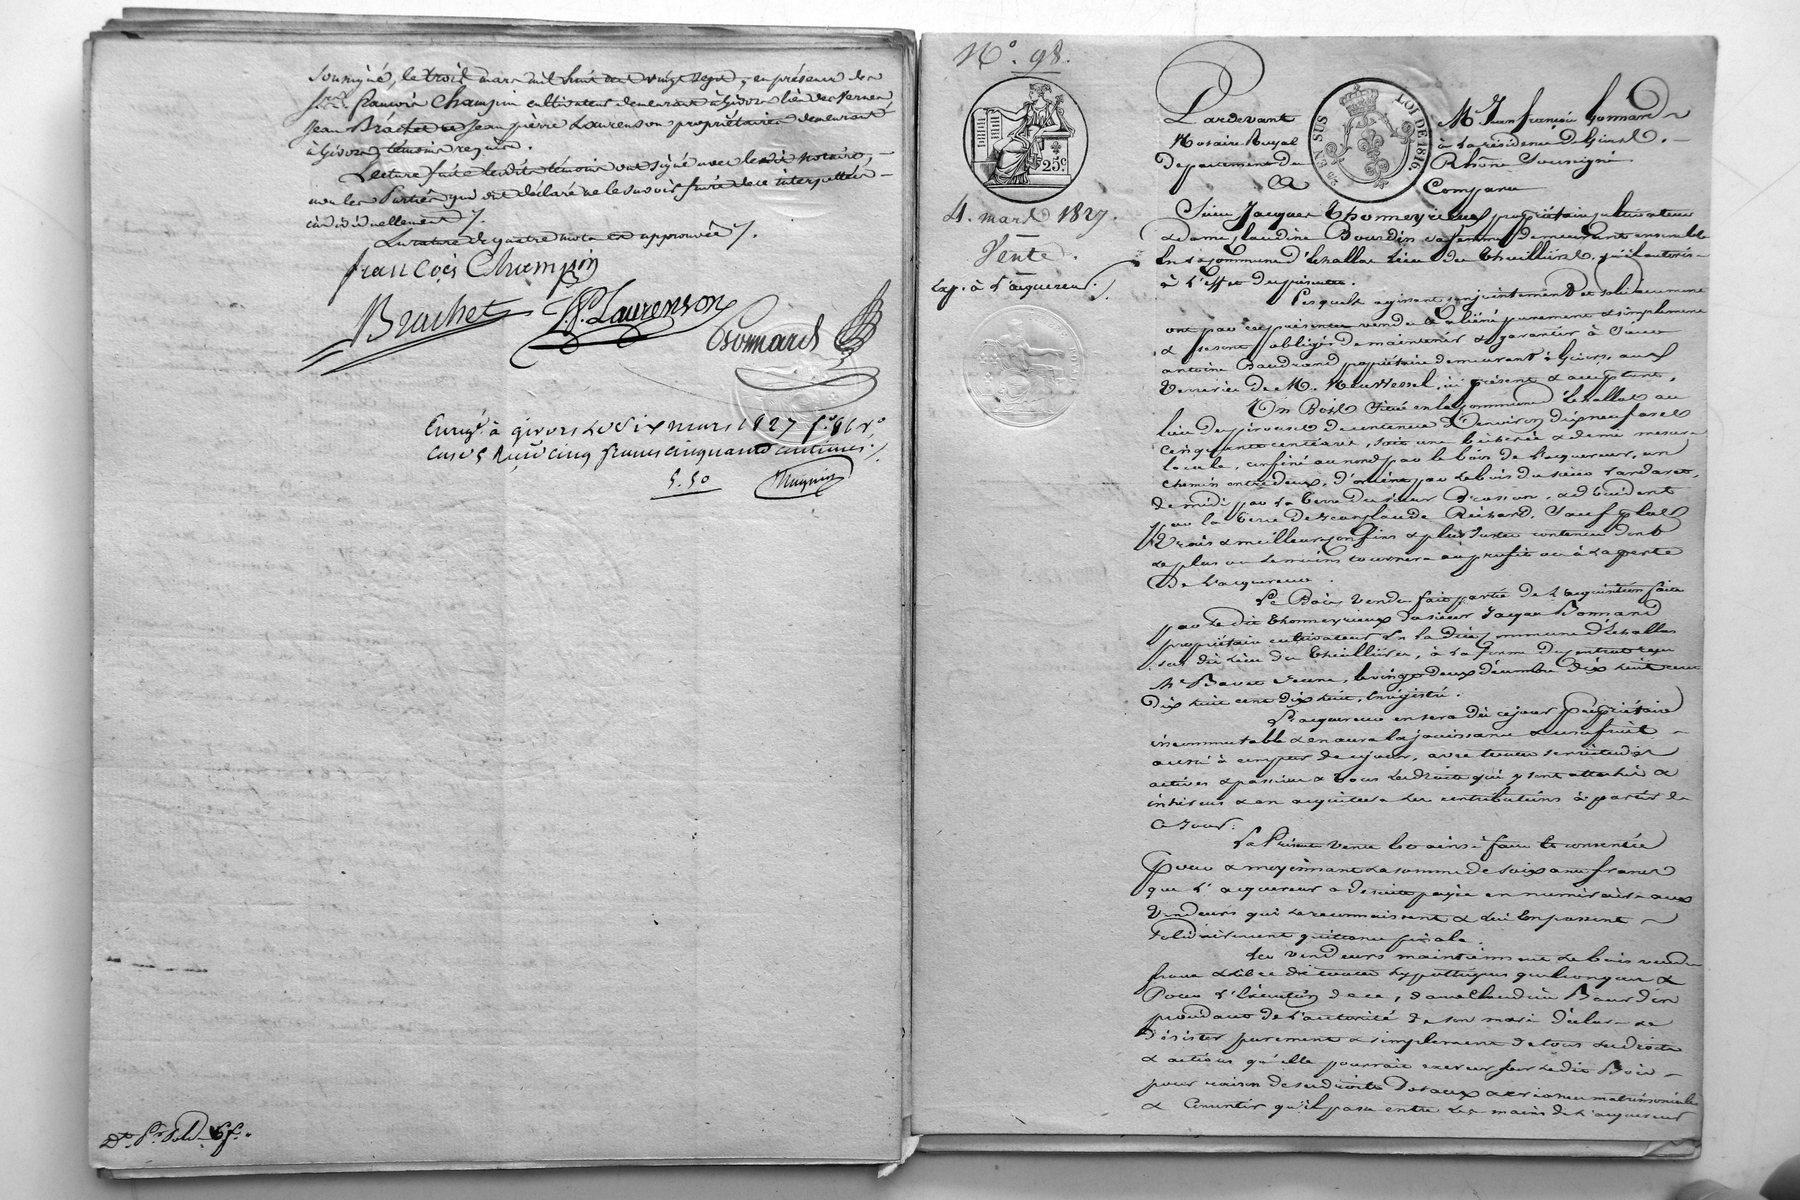 soussigné, le trois mars mil huit cent vingt sept, en présence de
françois Champin cultivateur demeurant à Givors lieu de Vernes
Jean Brachet et Jean pierre Laurenson propriétaires demeurant
à Givors, témoins requis.
Lecture faite lesdits témoins ont signé avec ledit notaire, -
non les Parties qui ont déclaré ne le savoir faire de ce interpellées -
individuellement /.
de quatre mots approuvée /.
françois Champin
Brachet J. P. Laurenson
Gonnard
Enregé. à givors le Six mars 1827 fo. 86 Vo
Case 5 Reçu cinq francs cinquante centimes.
5.50
N°. 98.
25c.
4. mars 1827.
Vente.
Exp. à l'acquéreur.
EN SUS LOI DE 1816.
Pardevant Me. Jean françois Gonnard
Notaire Royal à la résidence de Givors. -
département du Rhône Soussigné
Comparu
Sieur Jacques Thomeyrieux propriétaire cultivateur
& dame Claudine Bourdin sa femme demeurant ensemble
En la commune d'Echallas Lieu du Theillière, qu'il autorise
à l'effet du présent.
Lesquels agissant conjointement et solidairement
ont par ces présentes vendu & aliéné purement & simplement
& se sont obligés de maintenir & garantir à Sieur
antoine Baudrand propriétaire demeurant à Givors, aux
Verreries de M. Neuvessel, ici présent & acceptant,
Un Bois Situé en la commune d'Echallas au
lieu de de contenue d'environ dix neuf ares
cinquante centiares, soit une bicherée & demie mesure
locale, confiné au nord par le bois de l'acquéreur, un
chemin entre deux, d'orient par le bois du sieur
de midi par la terre du sieur & d'occident
par la terre de Jean Claude Richard, Sauf plus
Vrais & meilleurs confins & plus juste contenue dont
le plus ou le moins tournera au profit ou à la perte
De l'acquéreur.
Le Bois Vendu fait partie de l'acquisition faite
par le dit Thomeyrieux du sieur Jacques Bonnand
propriétaire cultivateur En la dite commune d'Echallas
sus dit lieu du Theillière, à la forme du contrat reçu
Me. Jeune, le vingt deux décembre dix huit cent
dix huit cent dix huit, Enrégistré.
L'acquéreur en sera dès ce jour propriétaire
incommutable & en aura la jouissance & usufruit -
aussi à compter de ce jour, avec toutes servitudes
actives & passives & tous les droits qui y sont attachés &
inhérens & en acquittera les contributions à partir de
Ce Jour.
La Présente vente Est ainsi faite & consentie
pour & moyennant la somme de soixante francs
que l'acquéreur a de suite payée en numéraire aux
Vendeurs qui le reconnaissent & lui En passent -
Solidairement quittance finale.
Les vendeurs maintiennent le bois vendu
franc & libre de toutes hypothèques quelconques &
Pour l'Exécution de ce, dame Claudine Bourdin
procédant de l'autorité de son mari déclare se
désister purement & simplement de tous les droits
& actions qu'elle pourrait exercer sur ledit Bois -
pour raison de ses droits Dotaux & créances matrimoniales
& Consentir qu'il passe entre les mains de l'acquéreur